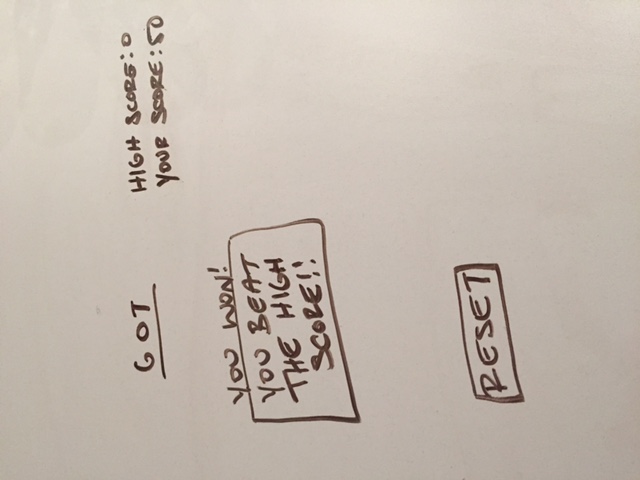 GOT
HIGH SCORE: 0
YOUR SCORE: 50
YOU WON!
YOU BEAT
THE HIGH
SCORE!!
RESET